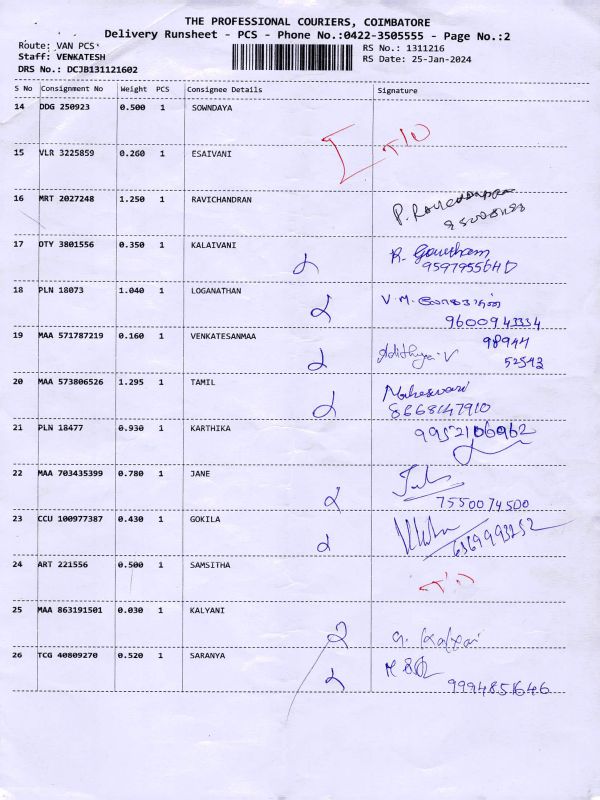 THE PROFESSIONAL COURIERS, COIMBATORE
Delivery Runsheet - PCS - Phone No.:0422-3505555 - Page No.:2
Route: VAN PCS
RS No.: 1311216
Staff: VENKATESH
RS Date: 25-Jan-2024
DRS No.: DCJB131121602
S No Consignment No Weight PCS Consignee Details Signature
14 DDG 250923 0.500 1 SOWNDAYA
15 VLR 3225859 0.260 1 ESAIVANI
16 MRT 2027248 1.250 1 RAVICHANDRAN
17 DTY 3801556 0.350 1 KALAIVANI R. Gowtham
18 PLN 18073 1.040 1 LOGANATHAN V.M.
9600943334
19 MAA 571787219 0.160 1 VENKATESANMAA 98944
Adithya.V 52543
20 MAA 573806526 1.295 1 TAMIL Maheswari
8668147910
21 PLN 18477 0.930 1 KARTHIKA 9952106962
22 MAA 703435399 0.780 1 JANE
7550074500
23 CCU 100977387 0.430 1 GOKILA
6369993252
24 ART 221556 0.500 1 SAMSITHA
25 MAA 863191501 0.030 1 KALYANI
26 TCG 40809270 0.520 1 SARANYA
9994851646